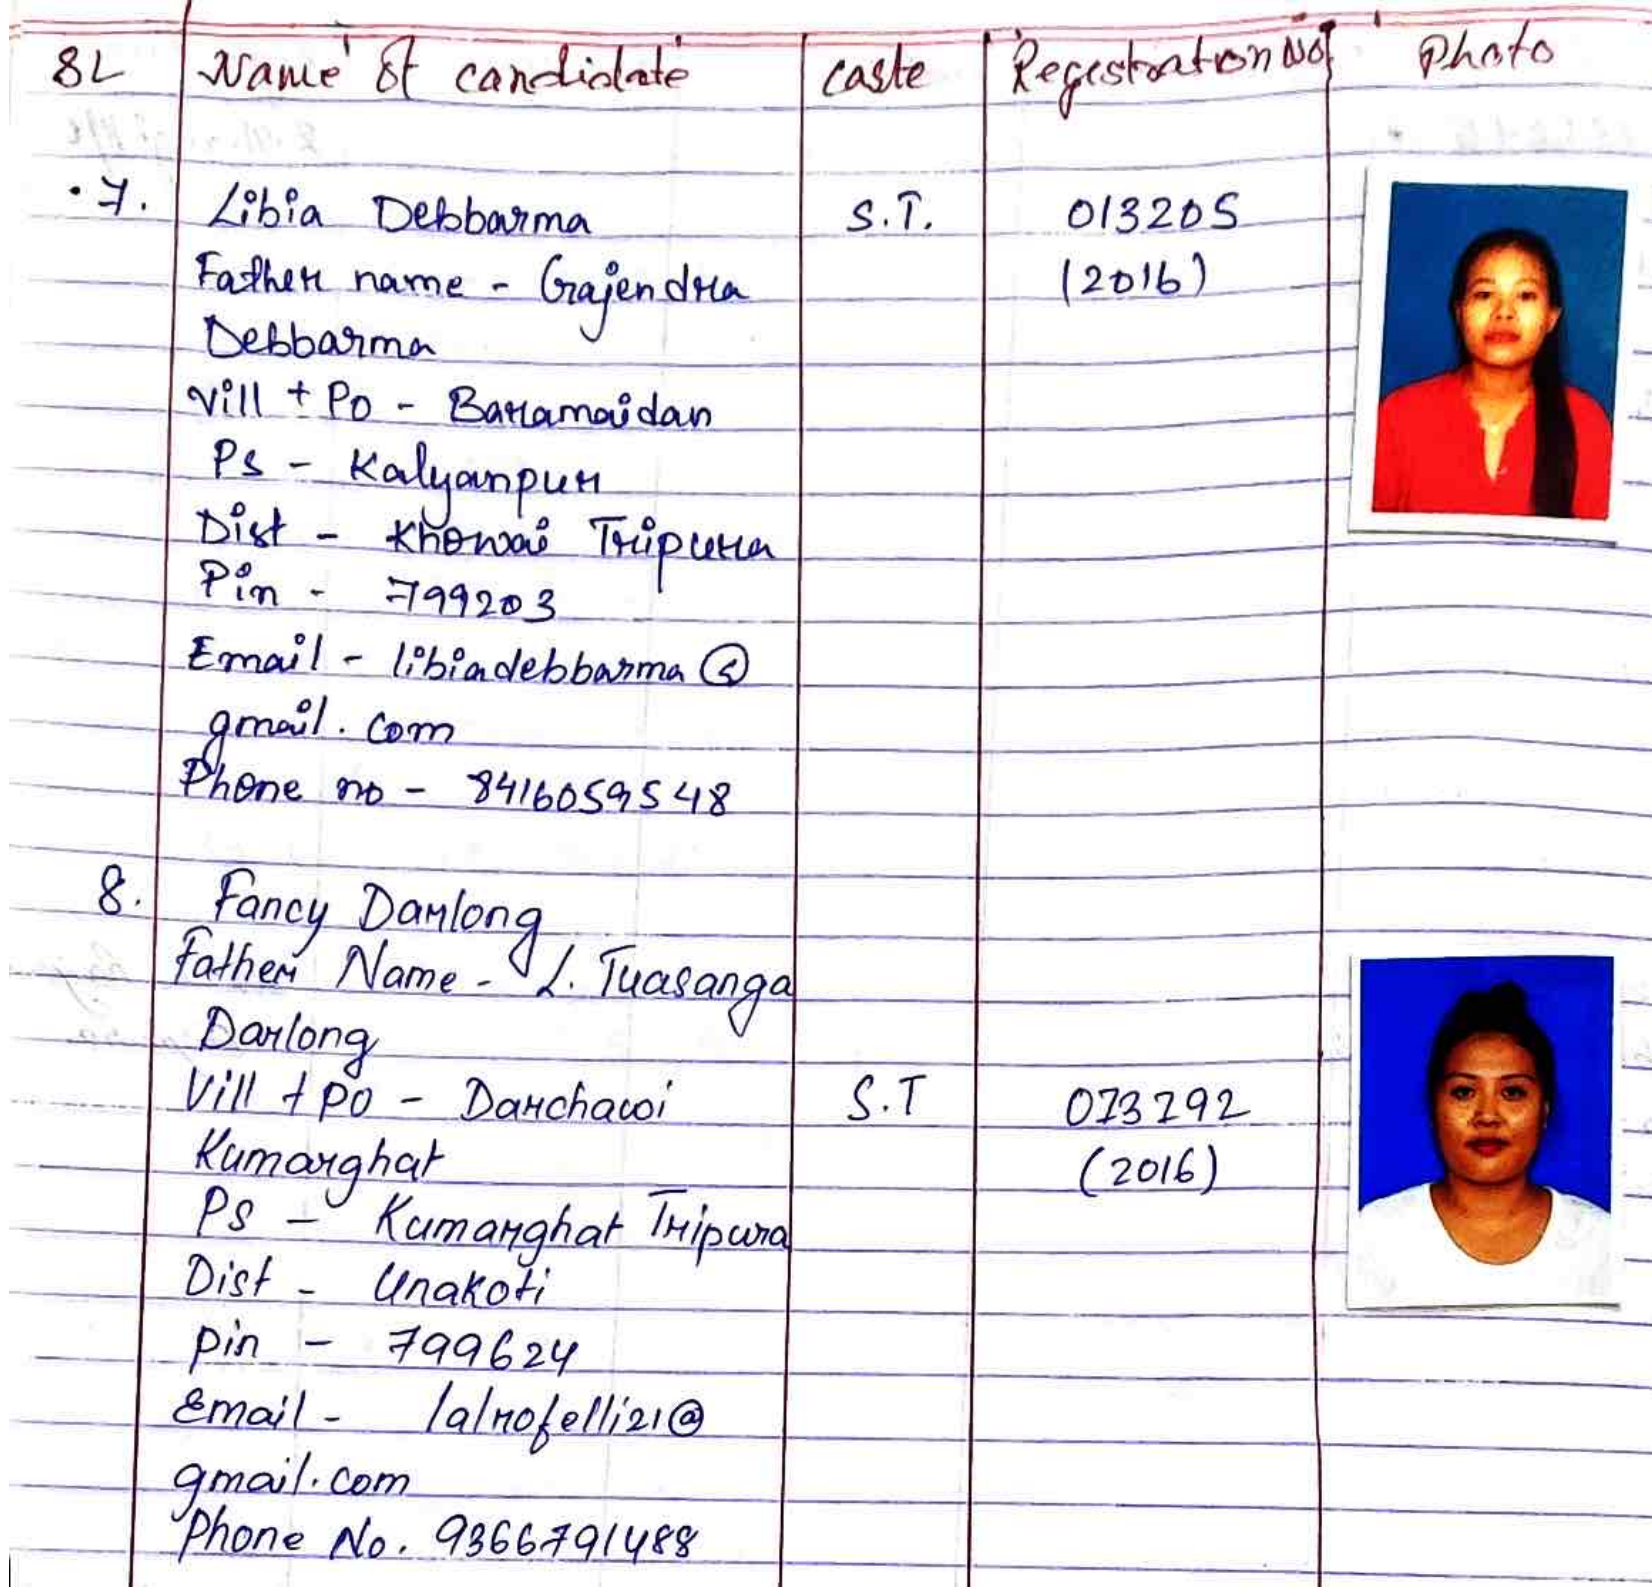 SL Name of candidate caste Registration No Photo
7. Libia Debbarma S.T. 013205
Father name - Gajendra (2016)
Debbarma
Vill + Po - Baramaidan
Ps - Kalyanpur
Dist - Khowai Tripura
Pin - 799203
Email - libiadebbarma@
gmail.com
Phone no - 8416059548
8. Fancy Darlong
Father Name - L. Tuasanga
Darlong
Vill + PO - Darchawi S.T 013292
Kumarghat (2016)
PS - Kumarghat Tripura
Dist - Unakoti
pin - 799624
Email - lalrofelli21@
gmail.com
Phone No. 9366791488